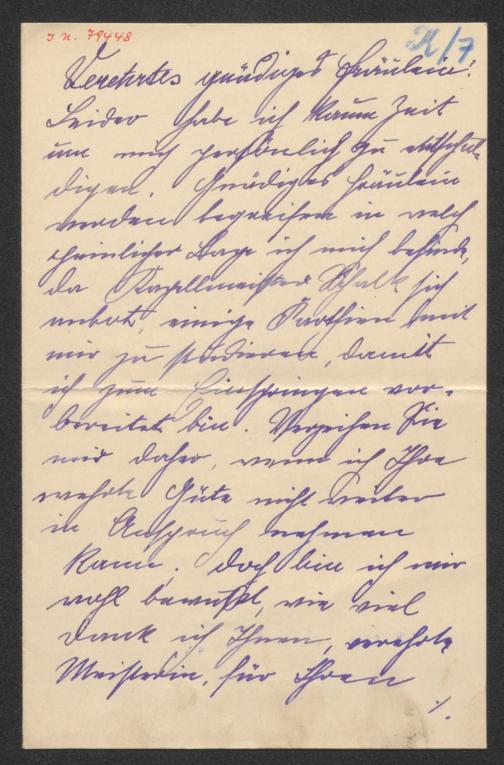 I. N. 79448
K/7
Verehrtes gnädiges Fräulein!
Leider habe ich kaum Zeit
um mich persönlich zu entschul-
digen. Gnädiges Fräulein
werden begreifen in welch
peinlicher Lage ich mich befinde,
da Kapellmeister Schalk sich
anbot, einige Parthien mit
mir zu studieren, damit
ich zum Einspringen vor-
bereitet bin. Verzeihen Sie
mir daher, wenn ich Ihre
werte Güte nicht weiter
in Anspruch nehmen
kann. Doch bin ich mir
wohl bewußt, wie viel
Dank ich Ihnen, verehrte
Meisterin, für Ihren
./.